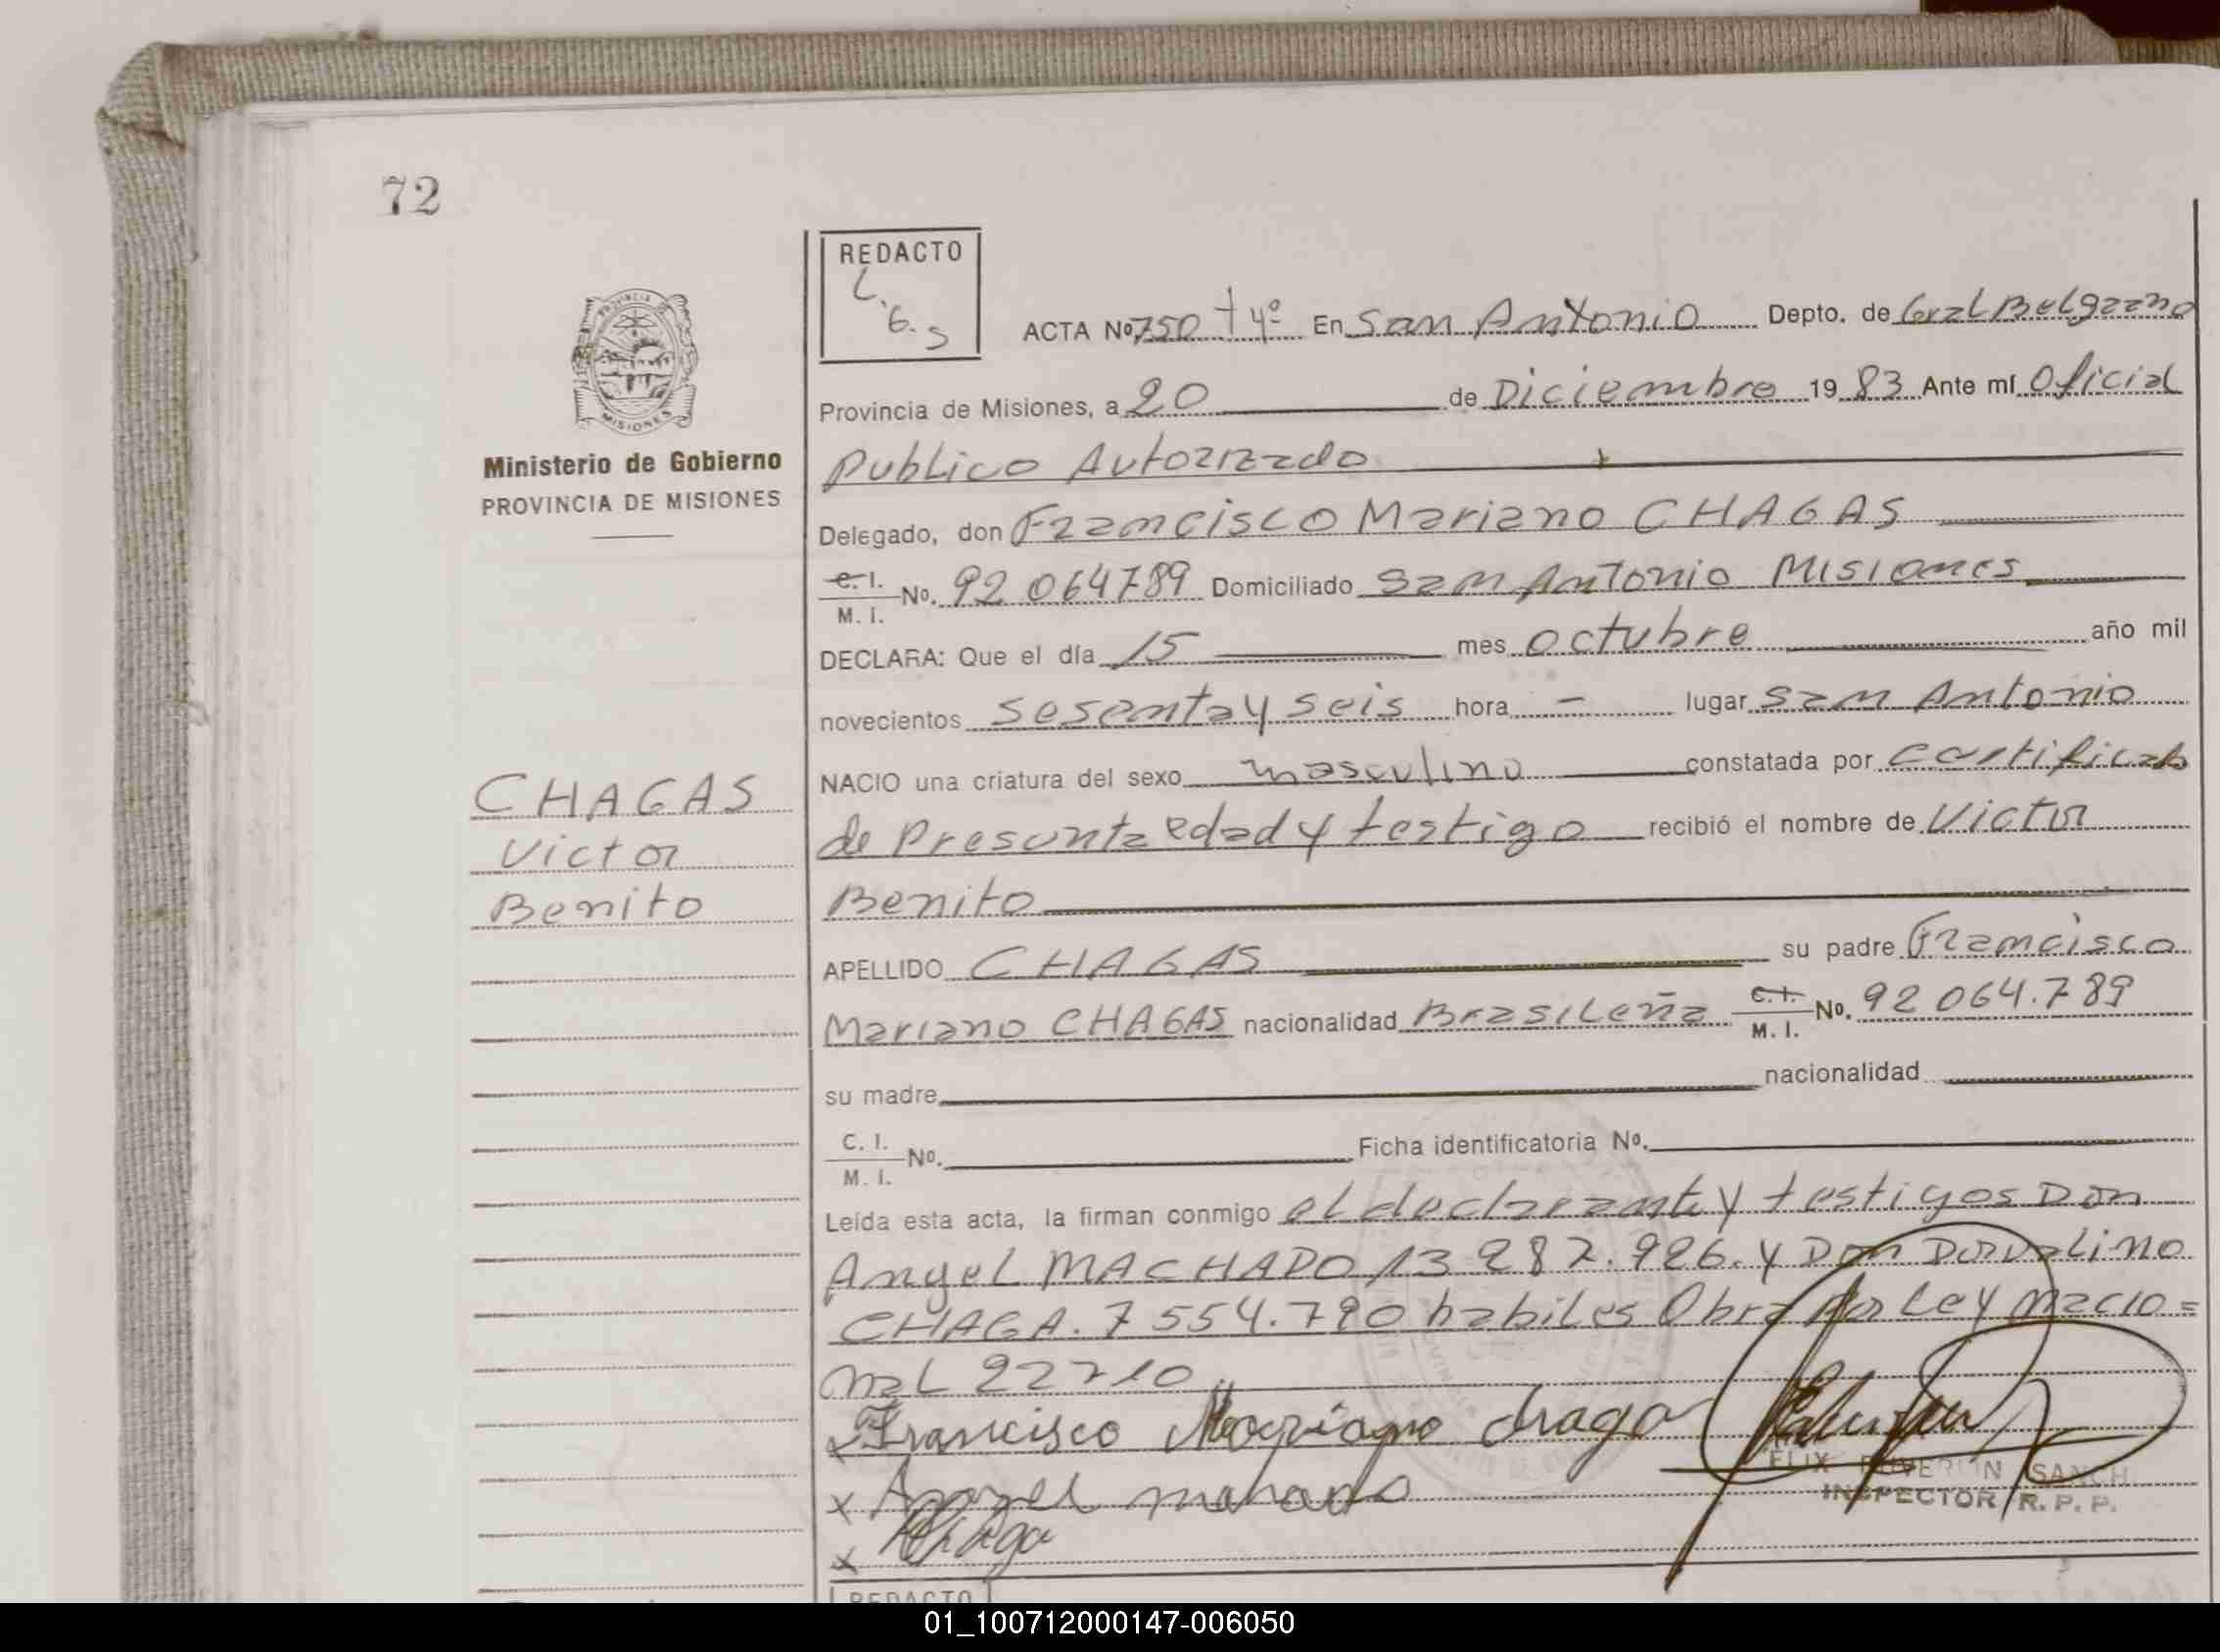 72
REDACTO
L.
G. S
ACTA Nº 750 tº 4º En San Antonio Depto. de Gral Belgrano
Provincia de Misiones, a 20 de Diciembre 19 83 Ante mí Oficial
Ministerio de Gobierno
PROVINCIA DE MISIONES
Publico Autorizado
Delegado, don Francisco Mariano CHAGAS
C. I.
M. I.
No. 92 064789 Domiciliado San Antonio Misiones
DECLARA: Que el día 15 mes octubre año mil
novecientos sesenta y seis hora - lugar San Antonio
NACIO una criatura del sexo masculino constatada por certificado
CHAGAS
Victor
Benito
de Presunta edad y testigo recibió el nombre de Victor
Benito
APELLIDO CHAGAS su padre Francisco
Mariano CHAGAS nacionalidad Brasileña C. I. M. I. No. 92 064.789
su madre nacionalidad
C. I.
M. I.
No. Ficha identificatoria Nº.
Leída esta acta, la firman conmigo el declarante y testigos Don
Angel MACHADO 13 287.926. y Don Dorvalino
CHAGA. 7 554.790 habiles Obra por Ley nacio=
nal 22710
Francisco Mariano chaga
x Angel
x Chaga
FELIX SANCH
INSPECTOR R. P. P.
REDACTO
01_100712000147-006050